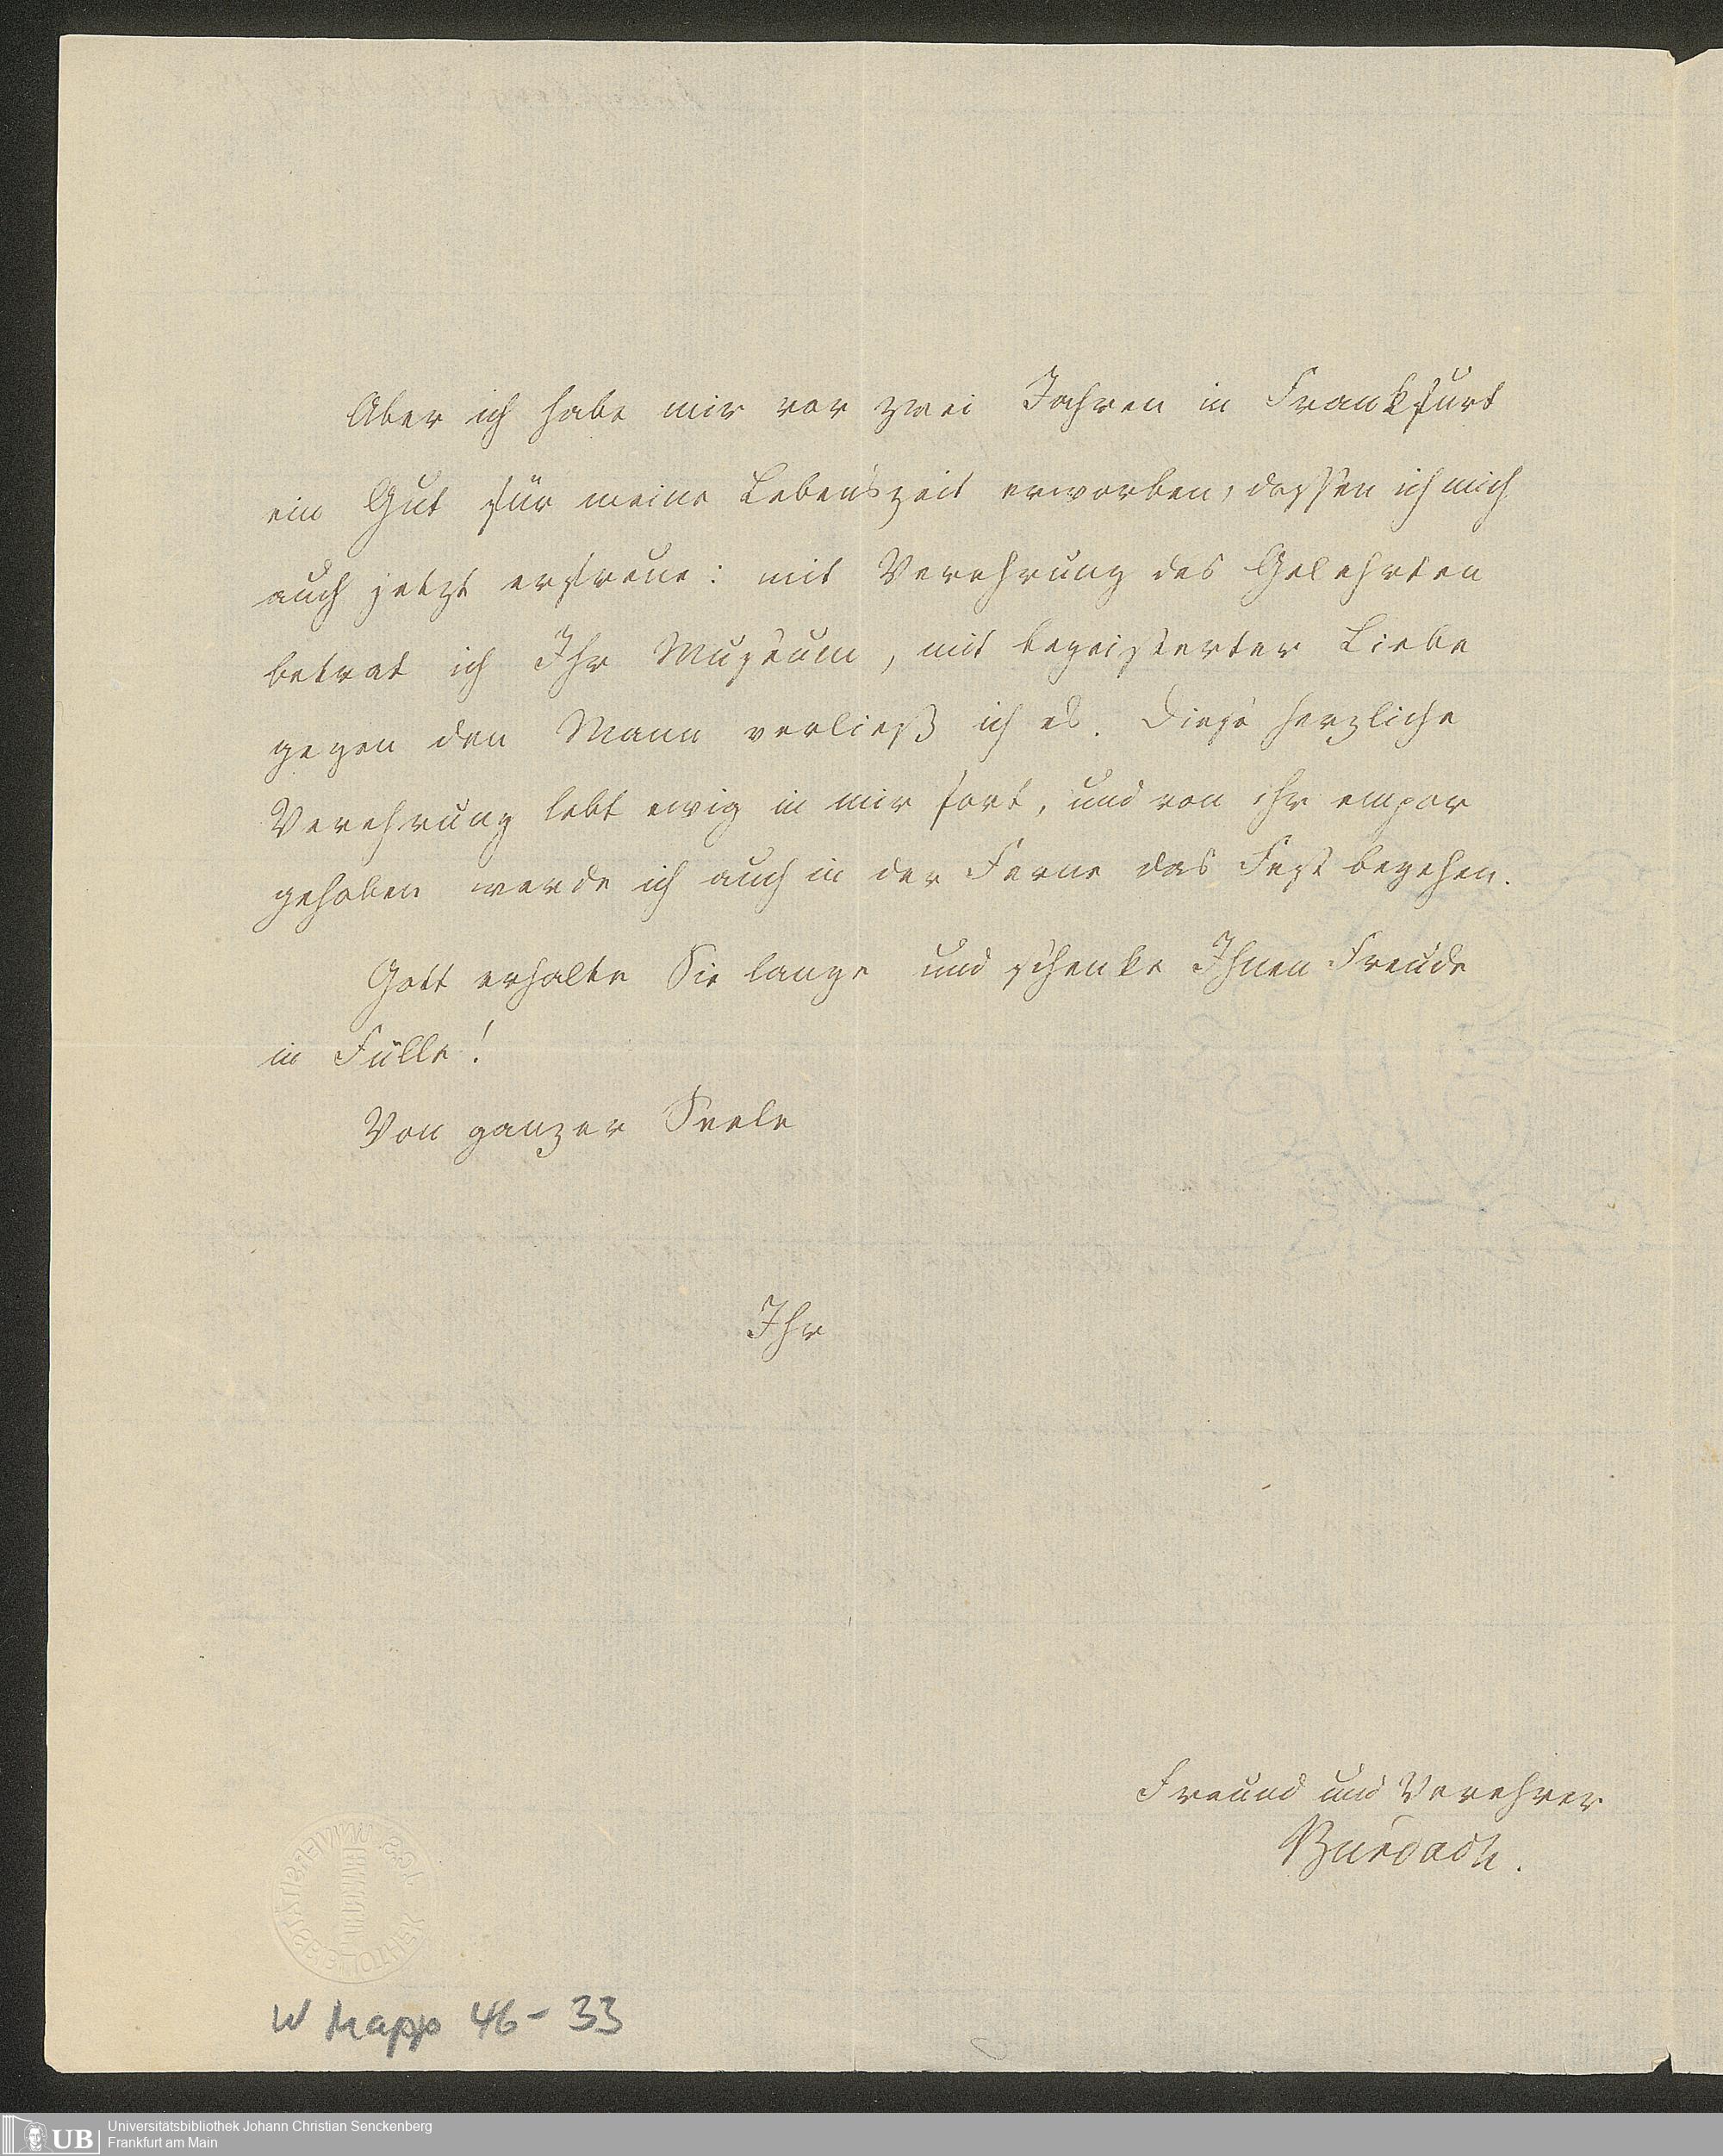 Aber ich habe mir vor zwei Jahren in Frankfurt
ein Gut für meine Lebenszeit erworben, dessen ich mich
auch jetzt erfreue: mit Verehrung des Gelehrten
betrat ich Ihr Museum, mit begeisterter Liebe
gegen den Mann verließ ich es. Diese herzliche
Verehrung lebt ewig in mir fort, und von ihr empor
gehoben werde ich auch in der Ferne das Fest begehen.
Gott erhalte Sie lange und schenke Ihnen Freude
in Fülle!
Von ganzer Seele
Ihr
Freund und Verehrer
Burdach.
W Kapp 46-33
UB
Universitätsbibliothek Johann Christian Senckenberg
Frankfurt am Main